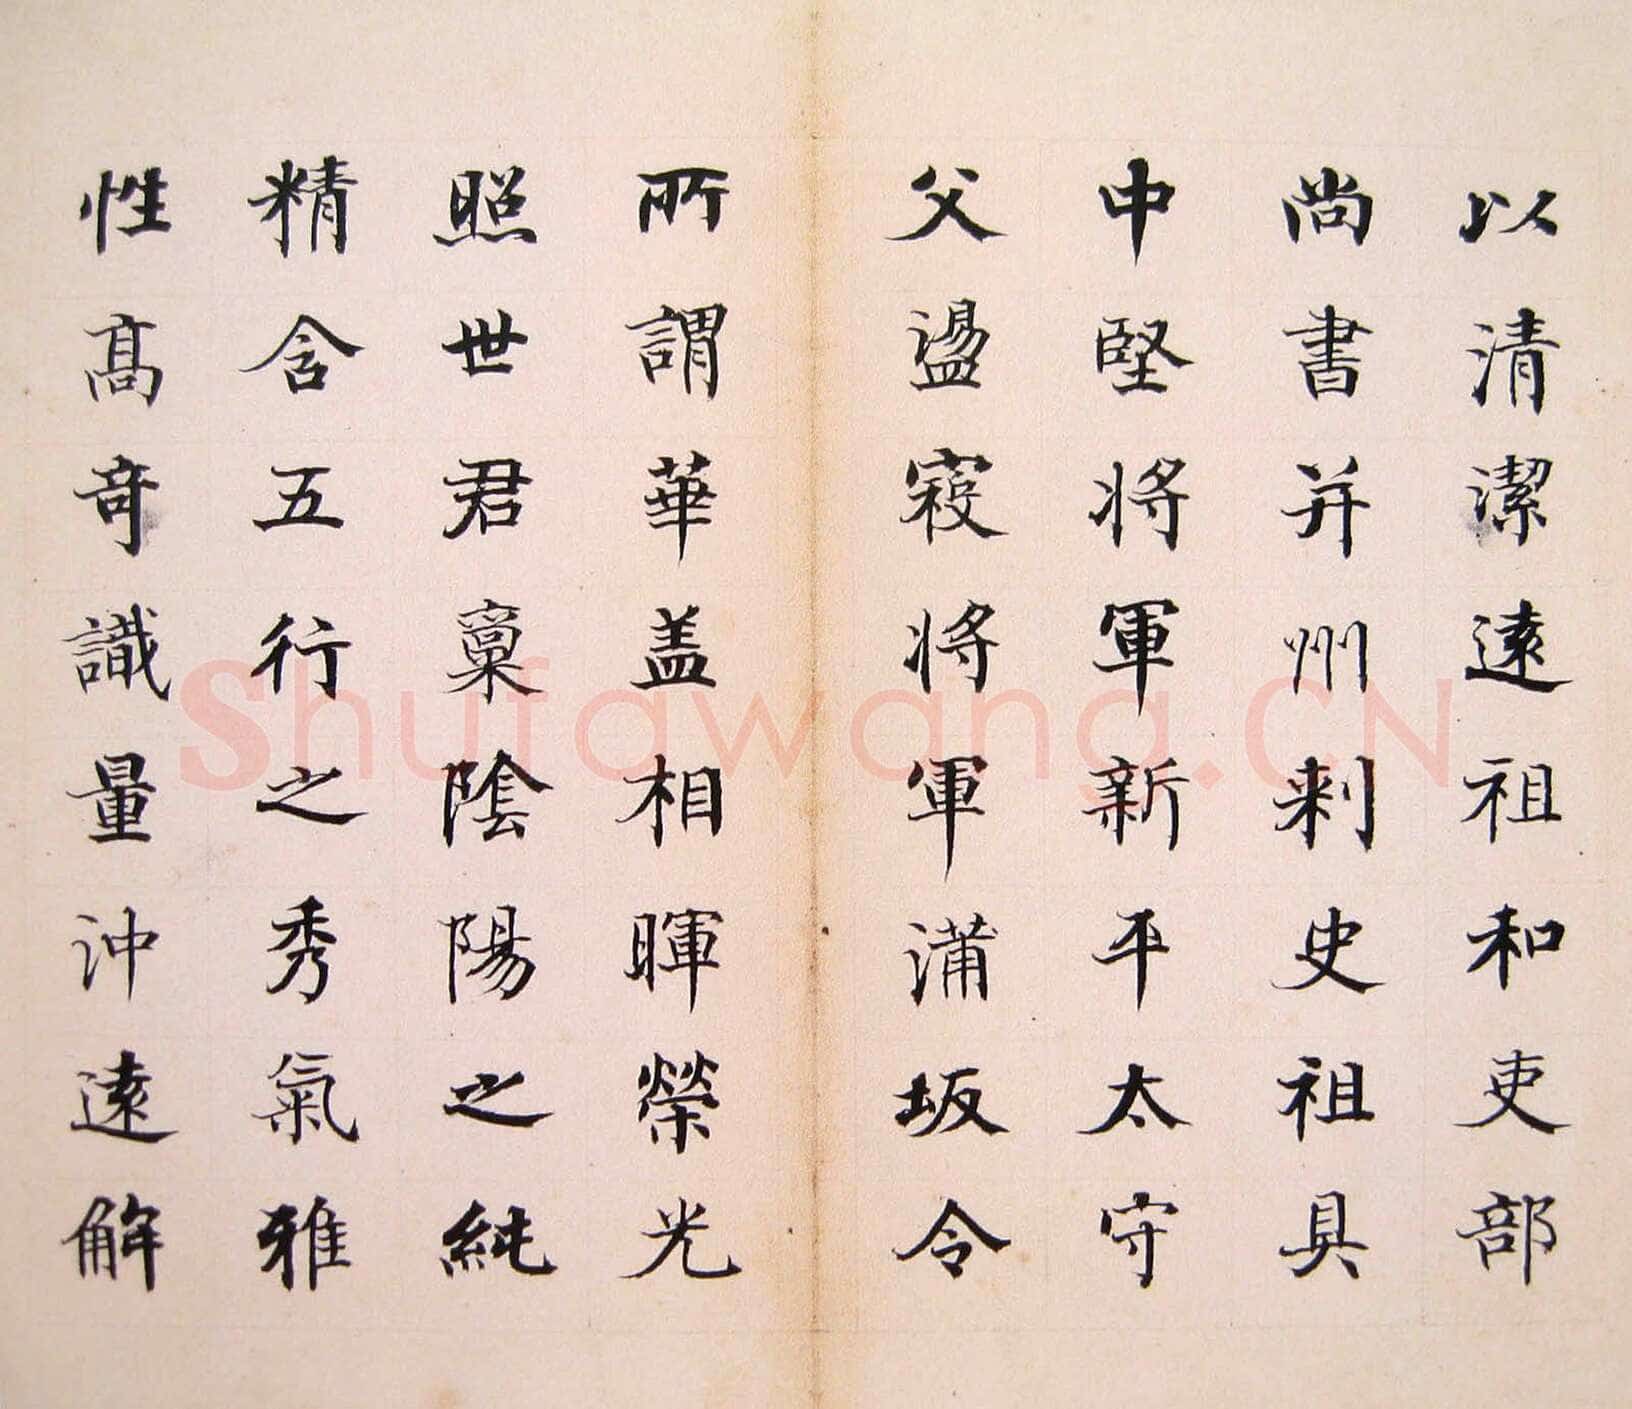 以清潔遠祖和吏部
尚書并州刺史祖具
中堅將軍新平太守
父盪寇將軍蒲坂令
所謂華蓋相暉榮光
照世君稟陰陽之純
精含五行之秀氣雅
性高奇識量沖遠解
Shufawang.CN